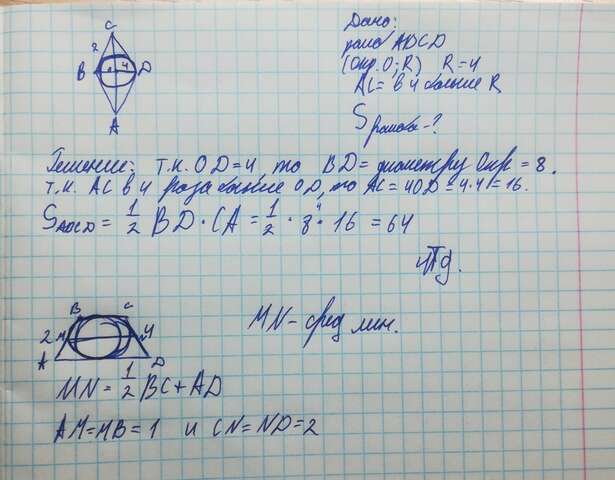 C
2
B 4 D
A
Дано:
ромб ABCD
(Окр. O; R) R=4
AC= в 4 больше R
S ромба-?
Решение: т.к. OD=4, то BD= диаметру Окр = 8.
т.к. AC в 4 раза больше OD, то AC=4OD=4·4=16.
S ABCD = 1/2 BD·CA = 1/2 · 8 · 16 = 64
чтд.
B C
2 M N 4
A D
MN- сред лин.
MN= 1/2 BC+AD
AM=MB=1 и CN=ND=2